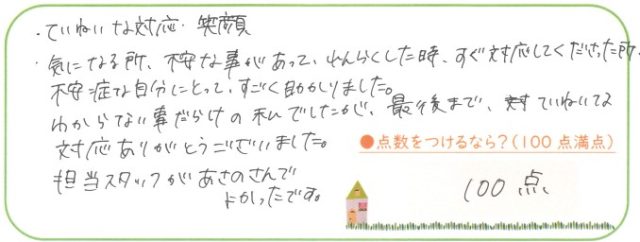 ・ていねいな対応・笑顔
・気になる所、不安な事があって、れんらくした時、すぐ対応してくださった所、
不安症な自分にとって、すごく助かりました。
わからない事だらけの私でしたが、最後まで、ていねいな
対応ありがとうございました。
担当スタッフがあさのさんで
よかったです。
●点数をつけるなら?(100点満点)
100点